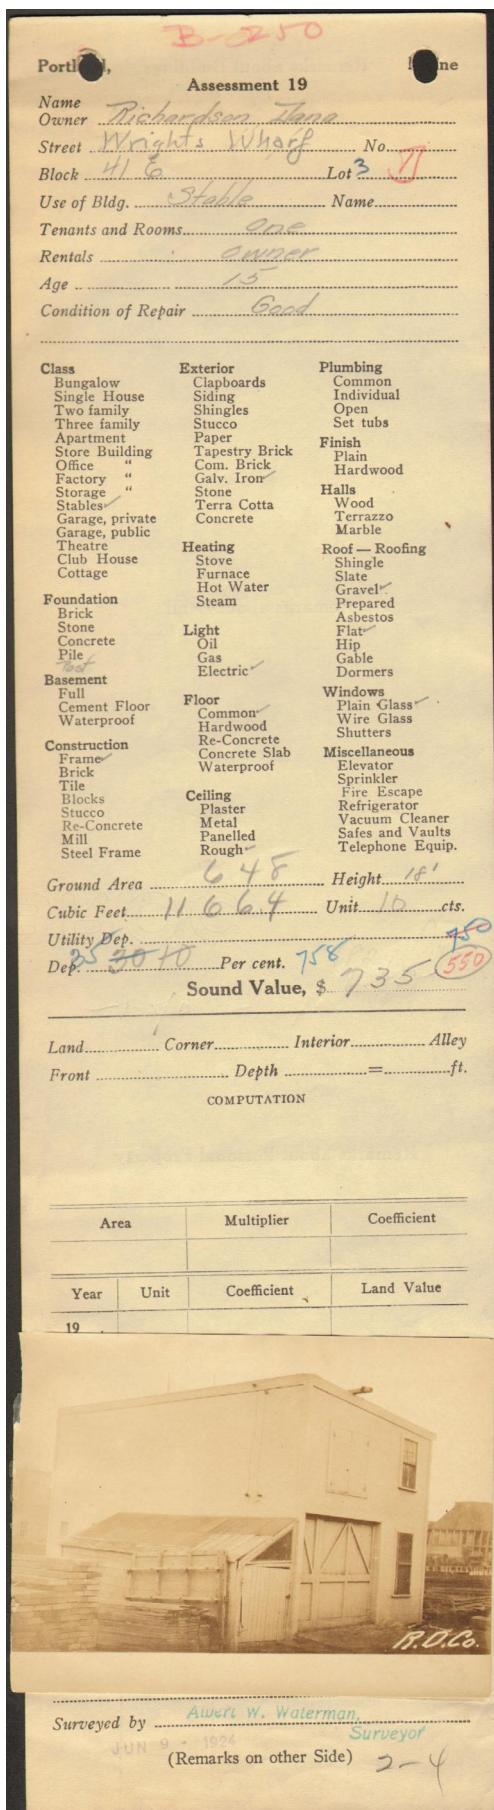 B-250
Portland, Maine
Assessment 19
Name
Owner Richardson Dana
Street Wrights Wharf No.
Block 41 E Lot 3
Use of Bldg. Stable Name
Tenants and Rooms one
Rentals owner
Age 15
Condition of Repair Good
Class
Bungalow
Single House
Two family
Three family
Apartment
Store Building
Office "
Factory "
Storage "
Stables ✓
Garage, private
Garage, public
Theatre
Club House
Cottage
Foundation
Brick
Stone
Concrete
Pile
Post
Basement
Full
Cement Floor
Waterproof
Construction
Frame ✓
Brick
Tile
Blocks
Stucco
Re-Concrete
Mill
Steel Frame
Exterior
Clapboards
Siding
Shingles
Stucco
Paper
Tapestry Brick
Com. Brick
Galv. Iron ✓
Stone
Terra Cotta
Concrete
Heating
Stove
Furnace
Hot Water
Steam
Light
Oil
Gas
Electric ✓
Floor
Common ✓
Hardwood
Re-Concrete
Concrete Slab
Waterproof
Ceiling
Plaster
Metal
Panelled
Rough ✓
Plumbing
Common
Individual
Open
Set tubs
Finish
Plain
Hardwood
Halls
Wood
Terrazzo
Marble
Roof — Roofing
Shingle
Slate
Gravel ✓
Prepared
Asbestos
Flat ✓
Hip
Gable
Dormers
Windows
Plain Glass ✓
Wire Glass
Shutters
Miscellaneous
Elevator
Sprinkler
Fire Escape
Refrigerator
Vacuum Cleaner
Safes and Vaults
Telephone Equip.
Ground Area 648 Height 18'
Cubic Feet 11664 Unit 10 cts.
Utility Dep. 750
Dep. 35 30 Per cent. 758 550
Sound Value, $ 735
Land Corner Interior Alley
Front Depth = ft.
COMPUTATION
Area Multiplier Coefficient
Year Unit Coefficient Land Value
19
R.D.Co.
Surveyed by Albert W. Waterman,
Surveyor
JUN 9 - 1924
(Remarks on other Side) 2-4